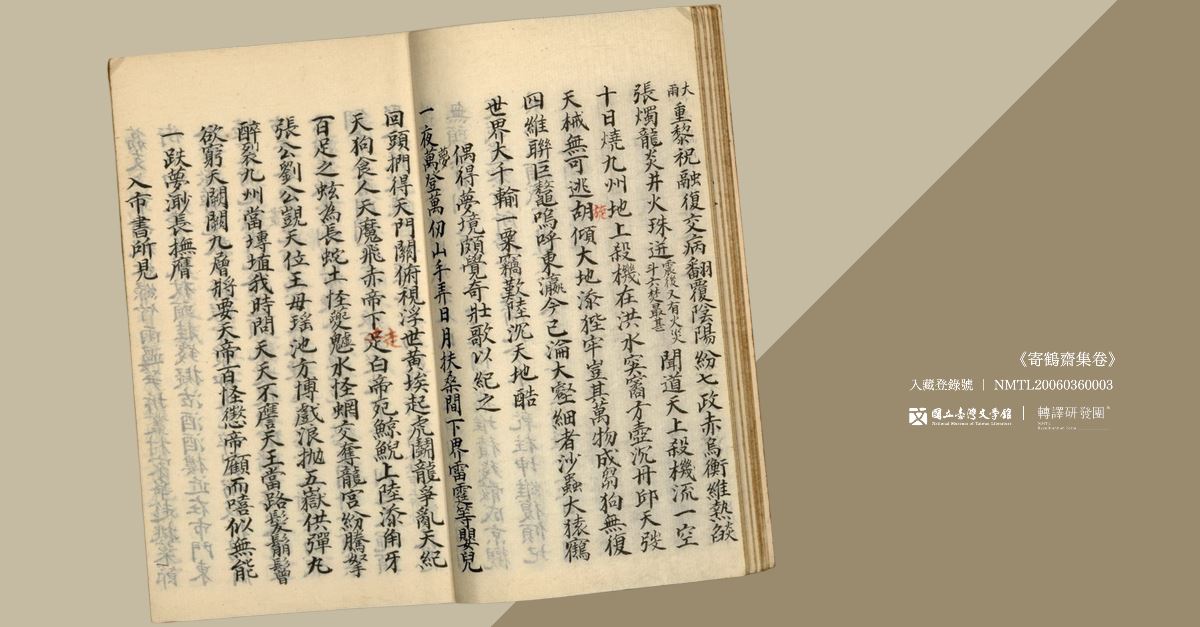 大雨重黎祝融復交病翻覆陰陽紛七政赤烏衡維熱燄
張燭龍炎井火珠迸震後又有火災斗六埜最甚聞道天上殺機流一空
十日燒九州地上殺機在洪水突窩方壺沉丹邱天發
天械無可逃胡旋傾大地添狴牢豈其萬物成芻狗無復
四維聯巨鼇嗚呼東瀛今已淪大壑細者沙蟲大猿鶴
世界大千輪一粟竊歎陸沉天地酷
偶得夢境頗覺奇壯歌以紀之
一夜夢登萬仞山手弄日月扶桑間下界雷霆等嬰兒
回頭捫得天門關俯視浮世黃埃起虎鬭龍爭亂天紀
天狗食人天魔飛赤帝下走白帝死鯨鯢上陸添角牙
百足之蚿為長蛇土怪夔魖水怪蜩交奪龍宮紛騰拏
張公劉公覬天位王母瑤池方博戲浪拋五嶽供彈丸
醉裂九州當塼埴我時問天天不譍天王當路髮鬅鬙
欲窮天闕闢九層將要天帝百怪懲帝顧而嘻似無能
一跌夢渺長撫膺
入市書所見
《寄鶴齋集卷》
入藏登錄號 | NMTL20060360003
國立臺灣文學館 | 轉譯研發團
National Museum of Taiwan Literature